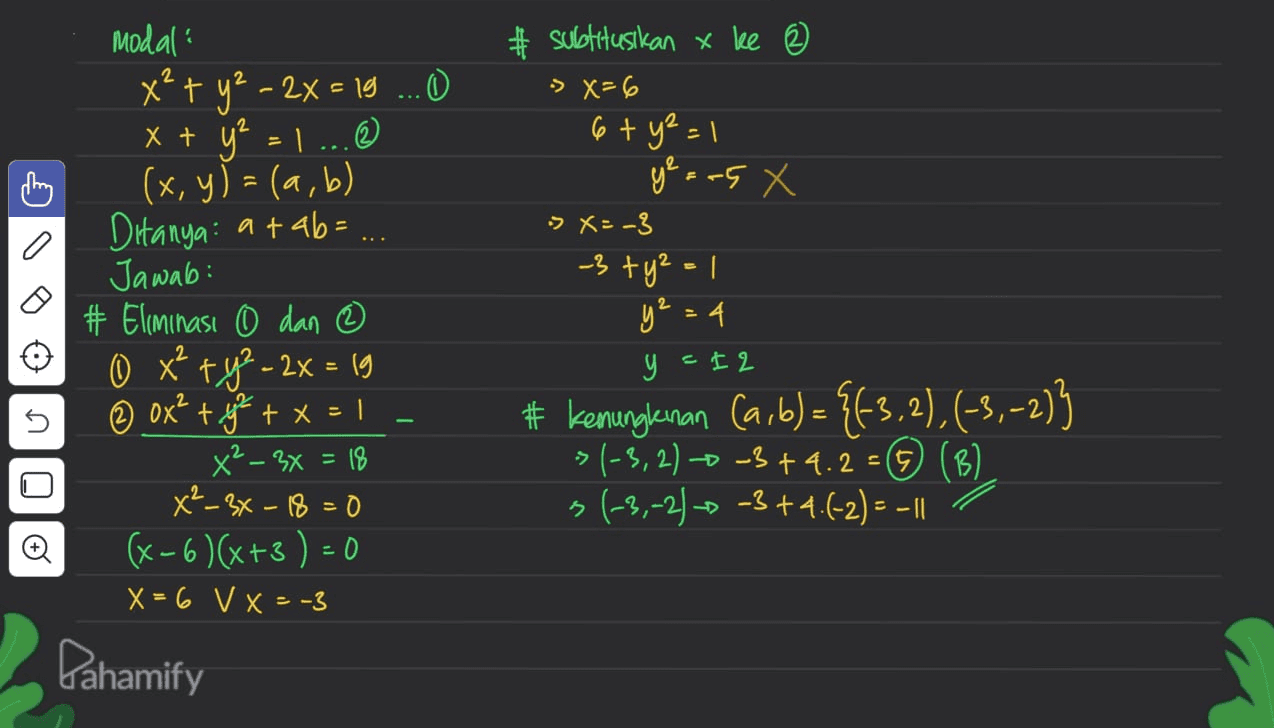 Modal:
x² + y² - 2x = 19 ... ①
x + y² = 1 ... ②
(x, y) = (a, b)
Ditanya: a + 4b = ...
Jawab:
# Eliminasi ① dan ②
① x² + y² - 2x = 19
② 0x² + y² + x = 1 -
x² - 3x = 18
x² - 3x - 18 = 0
(x - 6)(x + 3) = 0
x = 6 V x = -3
# subtitusikan x ke ②
> x = 6
6 + y² = 1
y² = -5 X
> x = -3
-3 + y² = 1
y² = 4
y = ±2
# kemungkinan (a, b) = {(-3, 2), (-3, -2)}
> (-3, 2) → -3 + 4.2 = 5 (B)
> (-3, -2) → -3 + 4.(-2) = -11
Pahamify